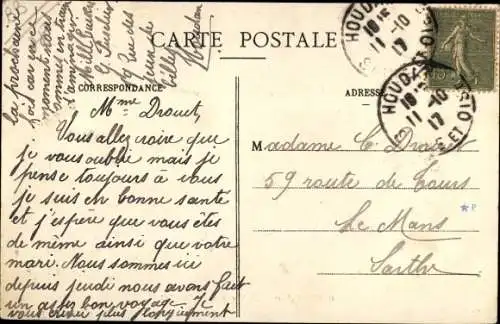 CARTE POSTALE
HOUDAN
18
11-10
17
S-ET-OISE
HOUDAN
18
11-10
17
S-ET-OISE
15
CORRESPONDANCE
ADRESSE
la prochaine
fois car en ce
moment nous
sommes en train
Mme Drouet,
Vous allez croire que
je vous oublie mais je
pense toujours à vous
je suis en bonne santé
et j'espère que vous êtes
de même ainsi que votre
mari. Nous sommes ici
depuis jeudi nous avons fait
un assez bon voyage. Je
vous écrirai plus longuement
Madame C. Drouet
59 route de Tours
Le Mans
Sarthe